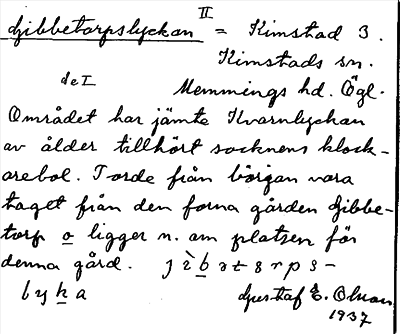 Djibbetorpslyckan II = Kimstad 3.
Kimstads sn.
de I Memmings hd. Ögl.
Området har jämte Kvarnlyckan
av ålder tillhört socknens klock-
arebol. Torde från början vara
taget från den forna gården Djibbe-
torp o ligger n. om platsen för
denna gård.
Gustaf E. Olsson
1937